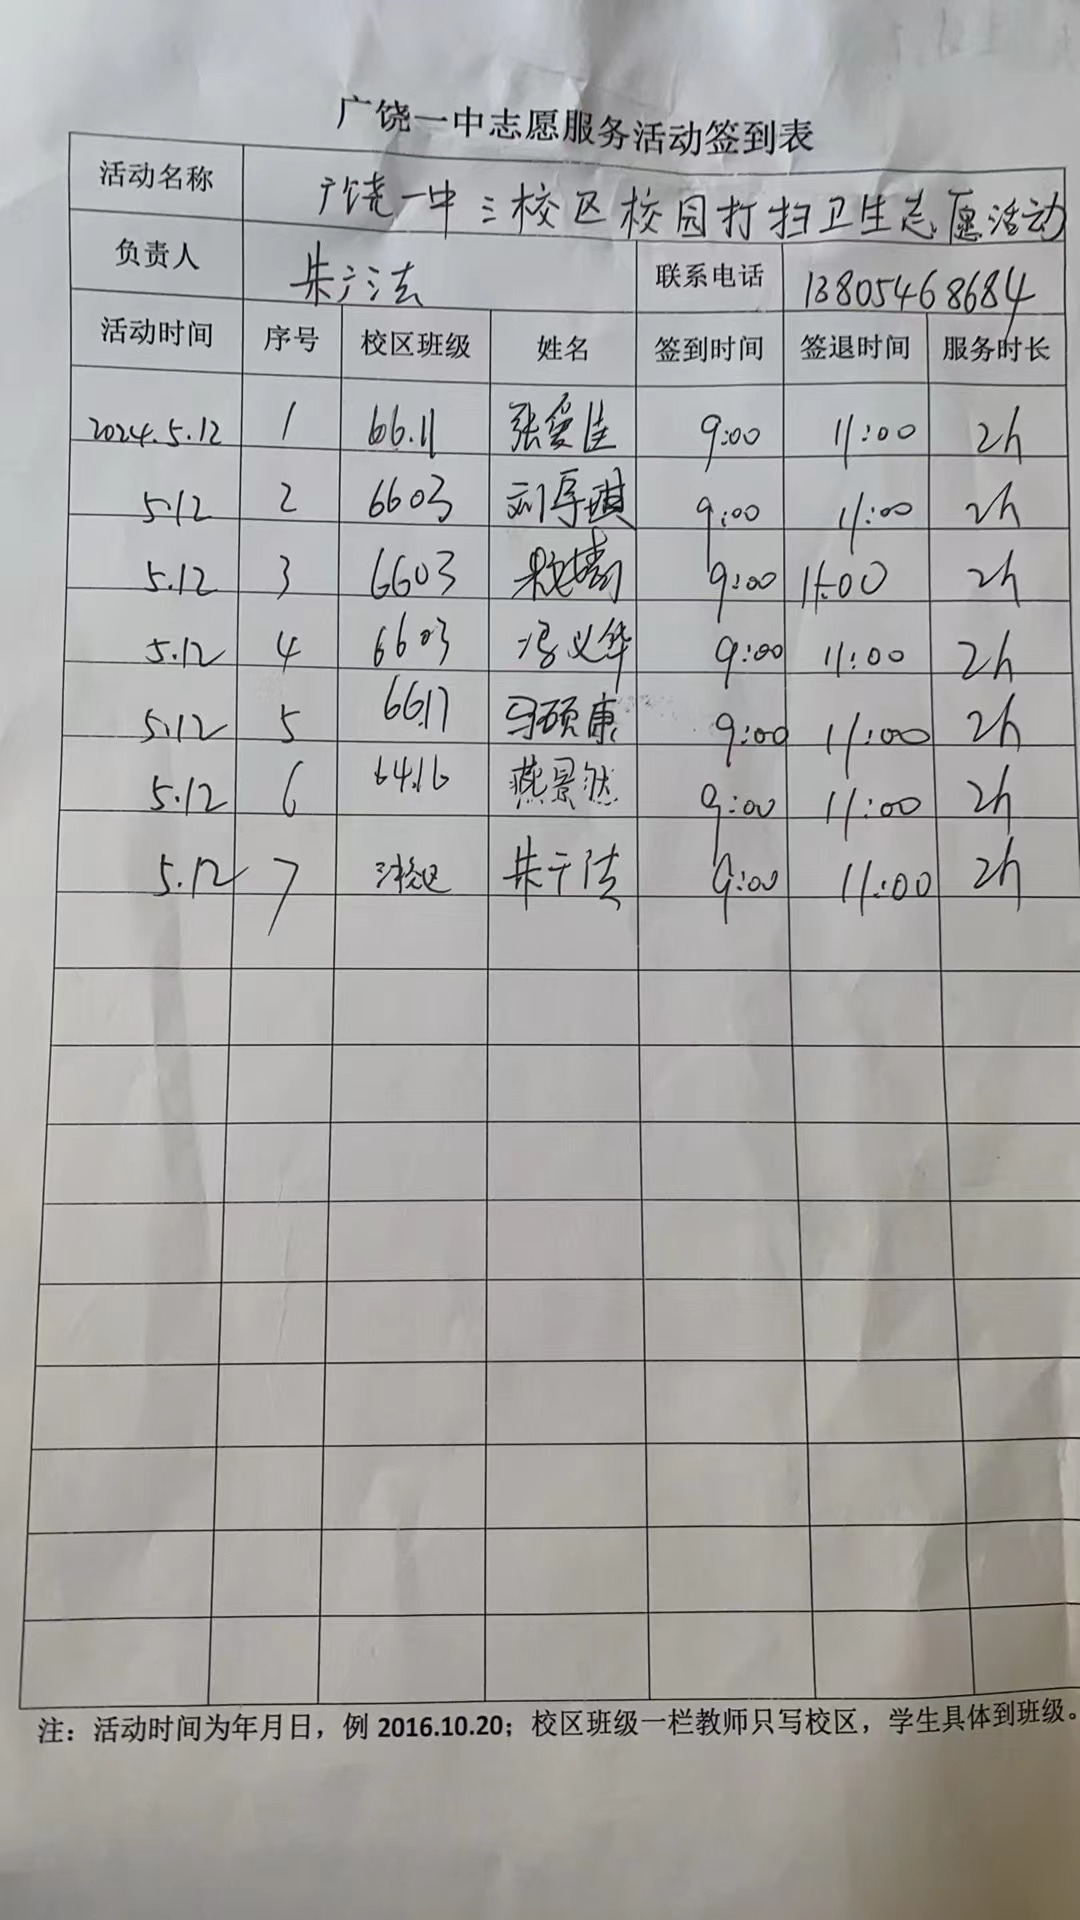 广饶一中志愿服务活动签到表
活动名称 广饶一中三校区校园打扫卫生志愿活动
负责人 朱 法 联系电话 13805468684
活动时间 序号 校区班级 姓名 签到时间 签退时间 服务时长
2024.5.12 1 66.11 张爱佳 9:00 11:00 2h
5.12 2 6603 刘 琪 9:00 11:00 2h
5.12 3 6603 9:00 11:00 2h
5.12 4 6603 冯义华 9:00 11:00 2h
5.12 5 66.17 马硕康 9:00 11:00 2h
5.12 6 64.16 燕景然 9:00 11:00 2h
5.12 7 三校区 朱 法 9:00 11:00 2h
注：活动时间为年月日，例 2016.10.20；校区班级一栏教师只写校区，学生具体到班级。